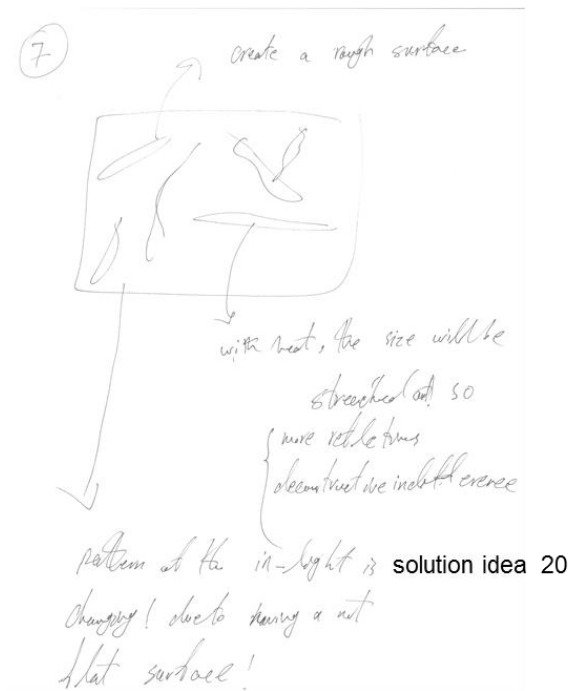 7
create a rough surface
with heat, the size will be
streached out so
more reflections
deconstructive indifference
pattern of the in-light is
changing! due to having a not
flat surface!
solution idea 20